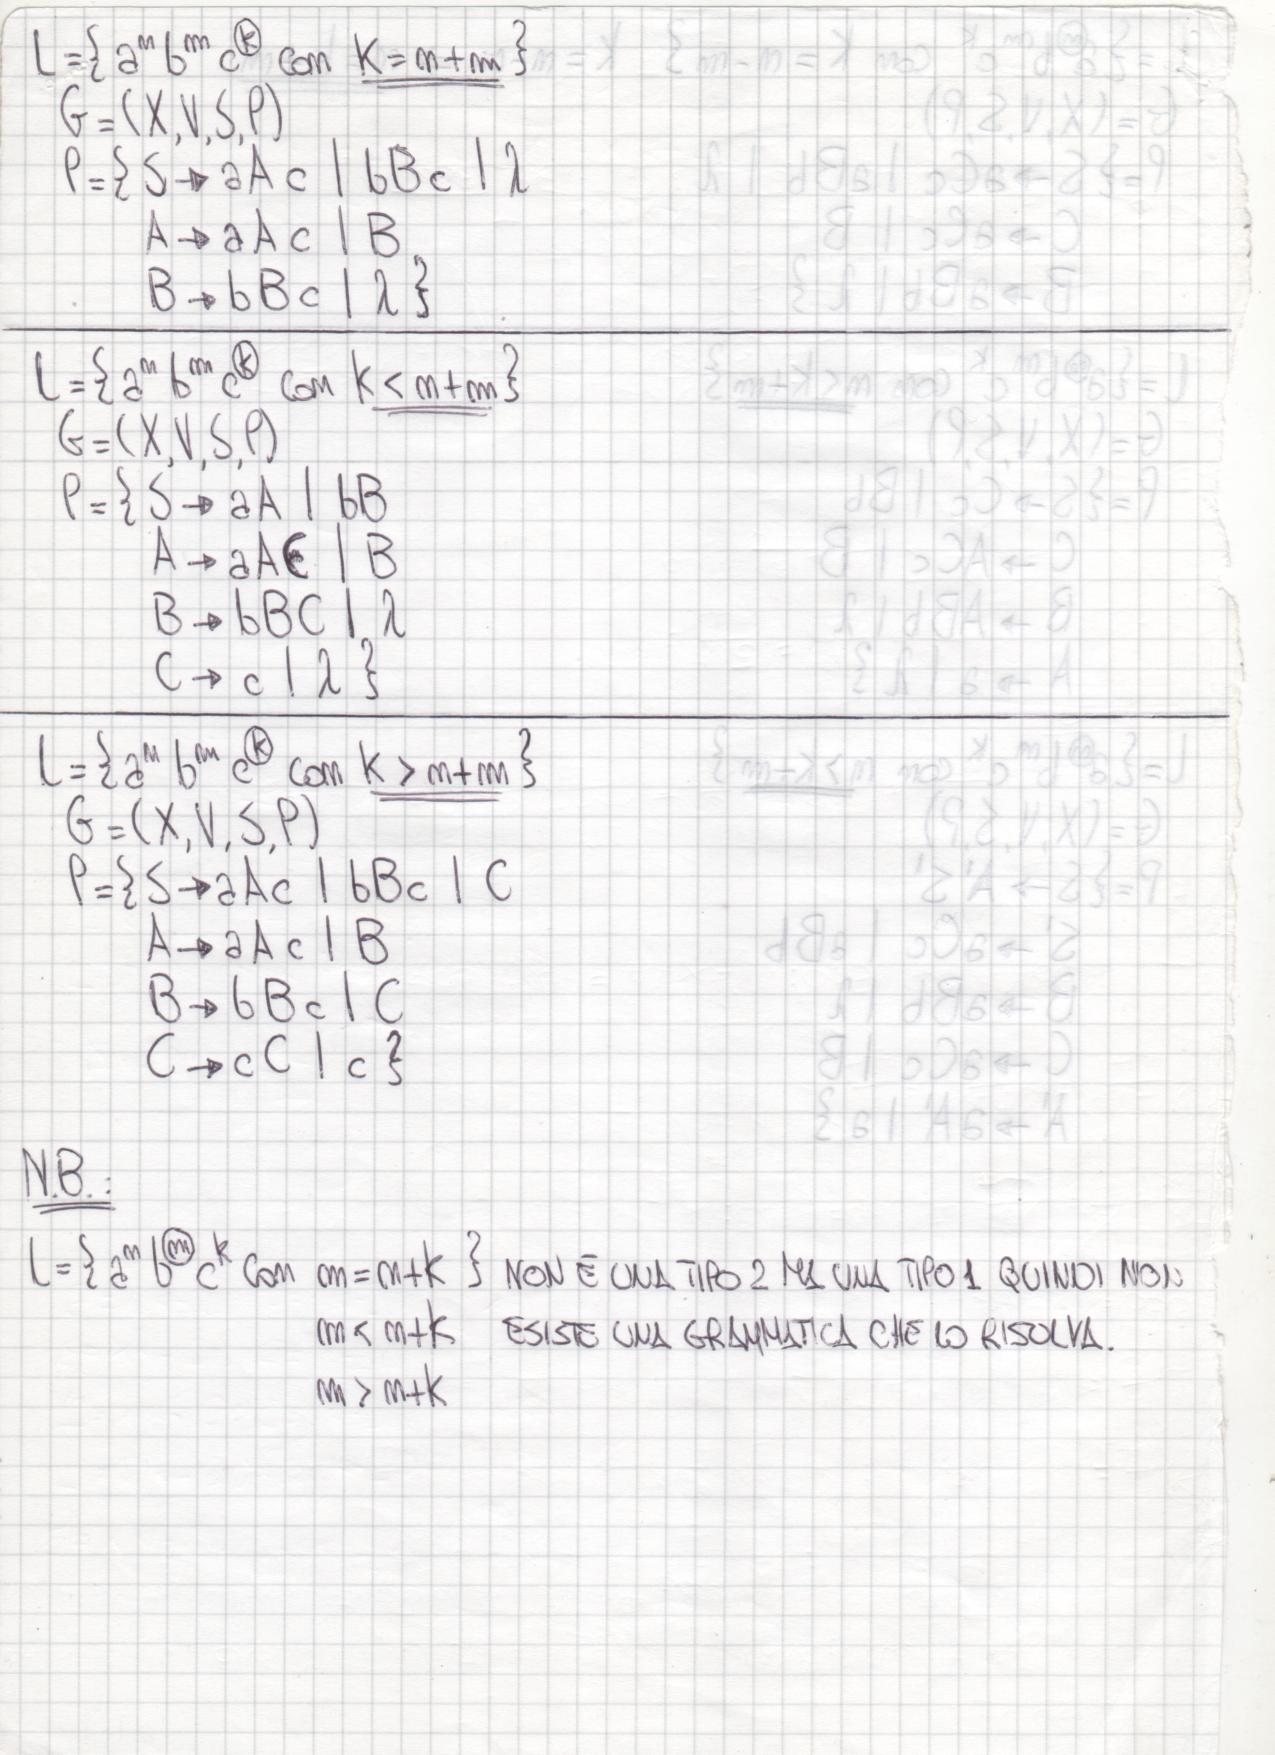 L={aⁿ bᵐ cᵏ con K=n+m}
G=(X,V,S,P)
P={S→aAc | bBc | λ
A→aAc | B
B→bBc | λ}
L={aⁿ bᵐ cᵏ con K<n+m}
G=(X,V,S,P)
P={S→aA | bB
A→aAC | B
B→bBC | λ
C→c | λ}
L={aⁿ bᵐ cᵏ con K>n+m}
G=(X,V,S,P)
P={S→aAc | bBc | C
A→aAc | B
B→bBc | C
C→cC | c}
N.B.:
L={aⁿ bᵐ cᵏ con m=n+k} NON È UNA TIPO 2 MA UNA TIPO 1 QUINDI NON
m<n+k ESISTE UNA GRAMMATICA CHE LO RISOLVA.
m>n+k